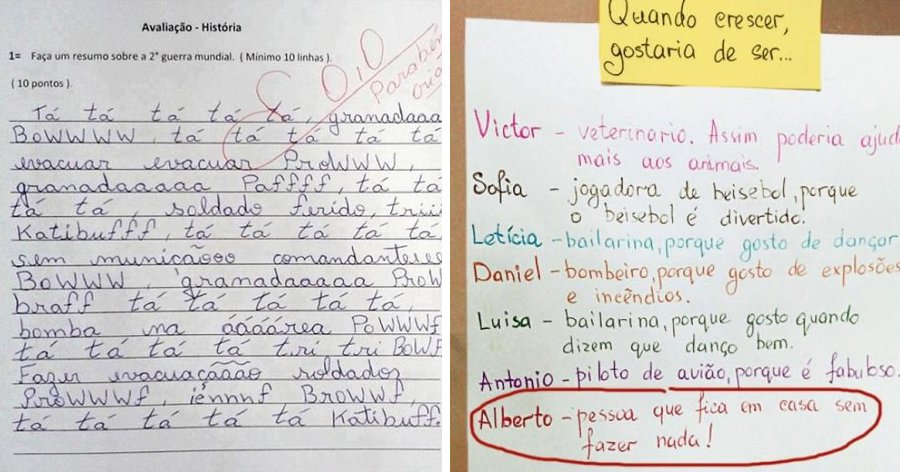 Avaliação - História
1= Faça um resumo sobre a 2° guerra mundial. ( Minimo 10 linhas ).
( 10 pontos ).
0,0
Tá tá tá tá tá, granadaaa
BOWWWW, tá tá tá tá tá
evacuar evacuar PROWWW,
granadaaaaa Paffff, tá tá
tá tá, soldado ferido, triii
Katibufff, tá tá tá tá tá
sem muniçãooo comandanteeee
BOWWW, granadaaaaa PROW
braff tá tá tá tá tá,
bomba na áááárea POWWWf
tá tá tá tá tri tri BOWF
Fazer evacuaçãããо soldados
PROWWWf, iénnnf BROWWf,
tá tá tá tá tá Katibuff.
Quando crescer,
gostaria de ser...
Victor - veterinario. Assim poderia ajud
mais aos animais.
Sofia - jogadora de beisebol, porque
o beisebol é divertido.
Letícia - bailarina, porque gosto de dançar
Daniel - bombeiro, porque gosto de explosões
e incêndios.
Luisa - bailarina, porque gosto quando
dizem que danço bem.
Antonio - piloto de avião, porque é fabuloso.
Alberto - pessoa que fica em casa sem
fazer nada!